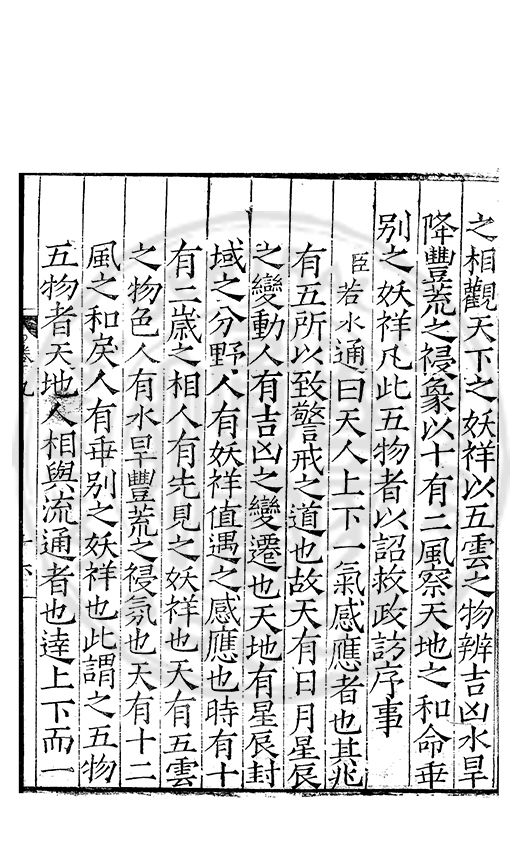 之相觀天下之妖祥以五雲之物辨吉凶水旱
降豐荒之祲象以十有二風察天地之和命乖
别之妖祥凡此五物者以詔救政訪序事
臣若水通曰天人上下一氣感應者也其兆
有五所以致警戒之道也故天有日月星辰
之變動人有吉凶之變遷也天地有星辰封
域之分野人有妖祥值遇之感應也時有十
有二歲之相人有先見之妖祥也天有五雲
之物色人有水旱豐荒之祲氛也天有十二
風之和戾人有乖别之妖祥也此謂之五物
五物者天地人相與流通者也達上下而一
卷九